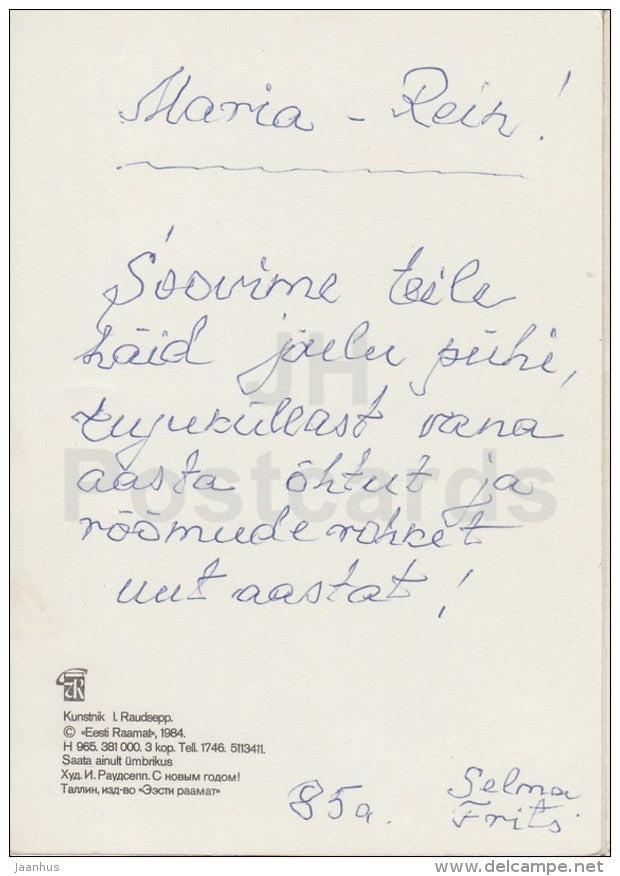 Maria - Rein!
Soovime teile
häid jõulu pühi,
tujuküllast vana
aasta õhtut ja
rõõmude rohket
uut aastat!
JH
Postcards
Kunstnik I. Raudsepp.
© «Eesti Raamat», 1984.
H 965. 381 000. 3 kop. Tell. 1746. 5113411.
Saata ainult ümbrikus
Худ. И. Раудсепп. С новым годом!
Таллин, изд-во «Ээсти раамат»
85a.
Selma
Frits
jaanhus
www.delcampe.net